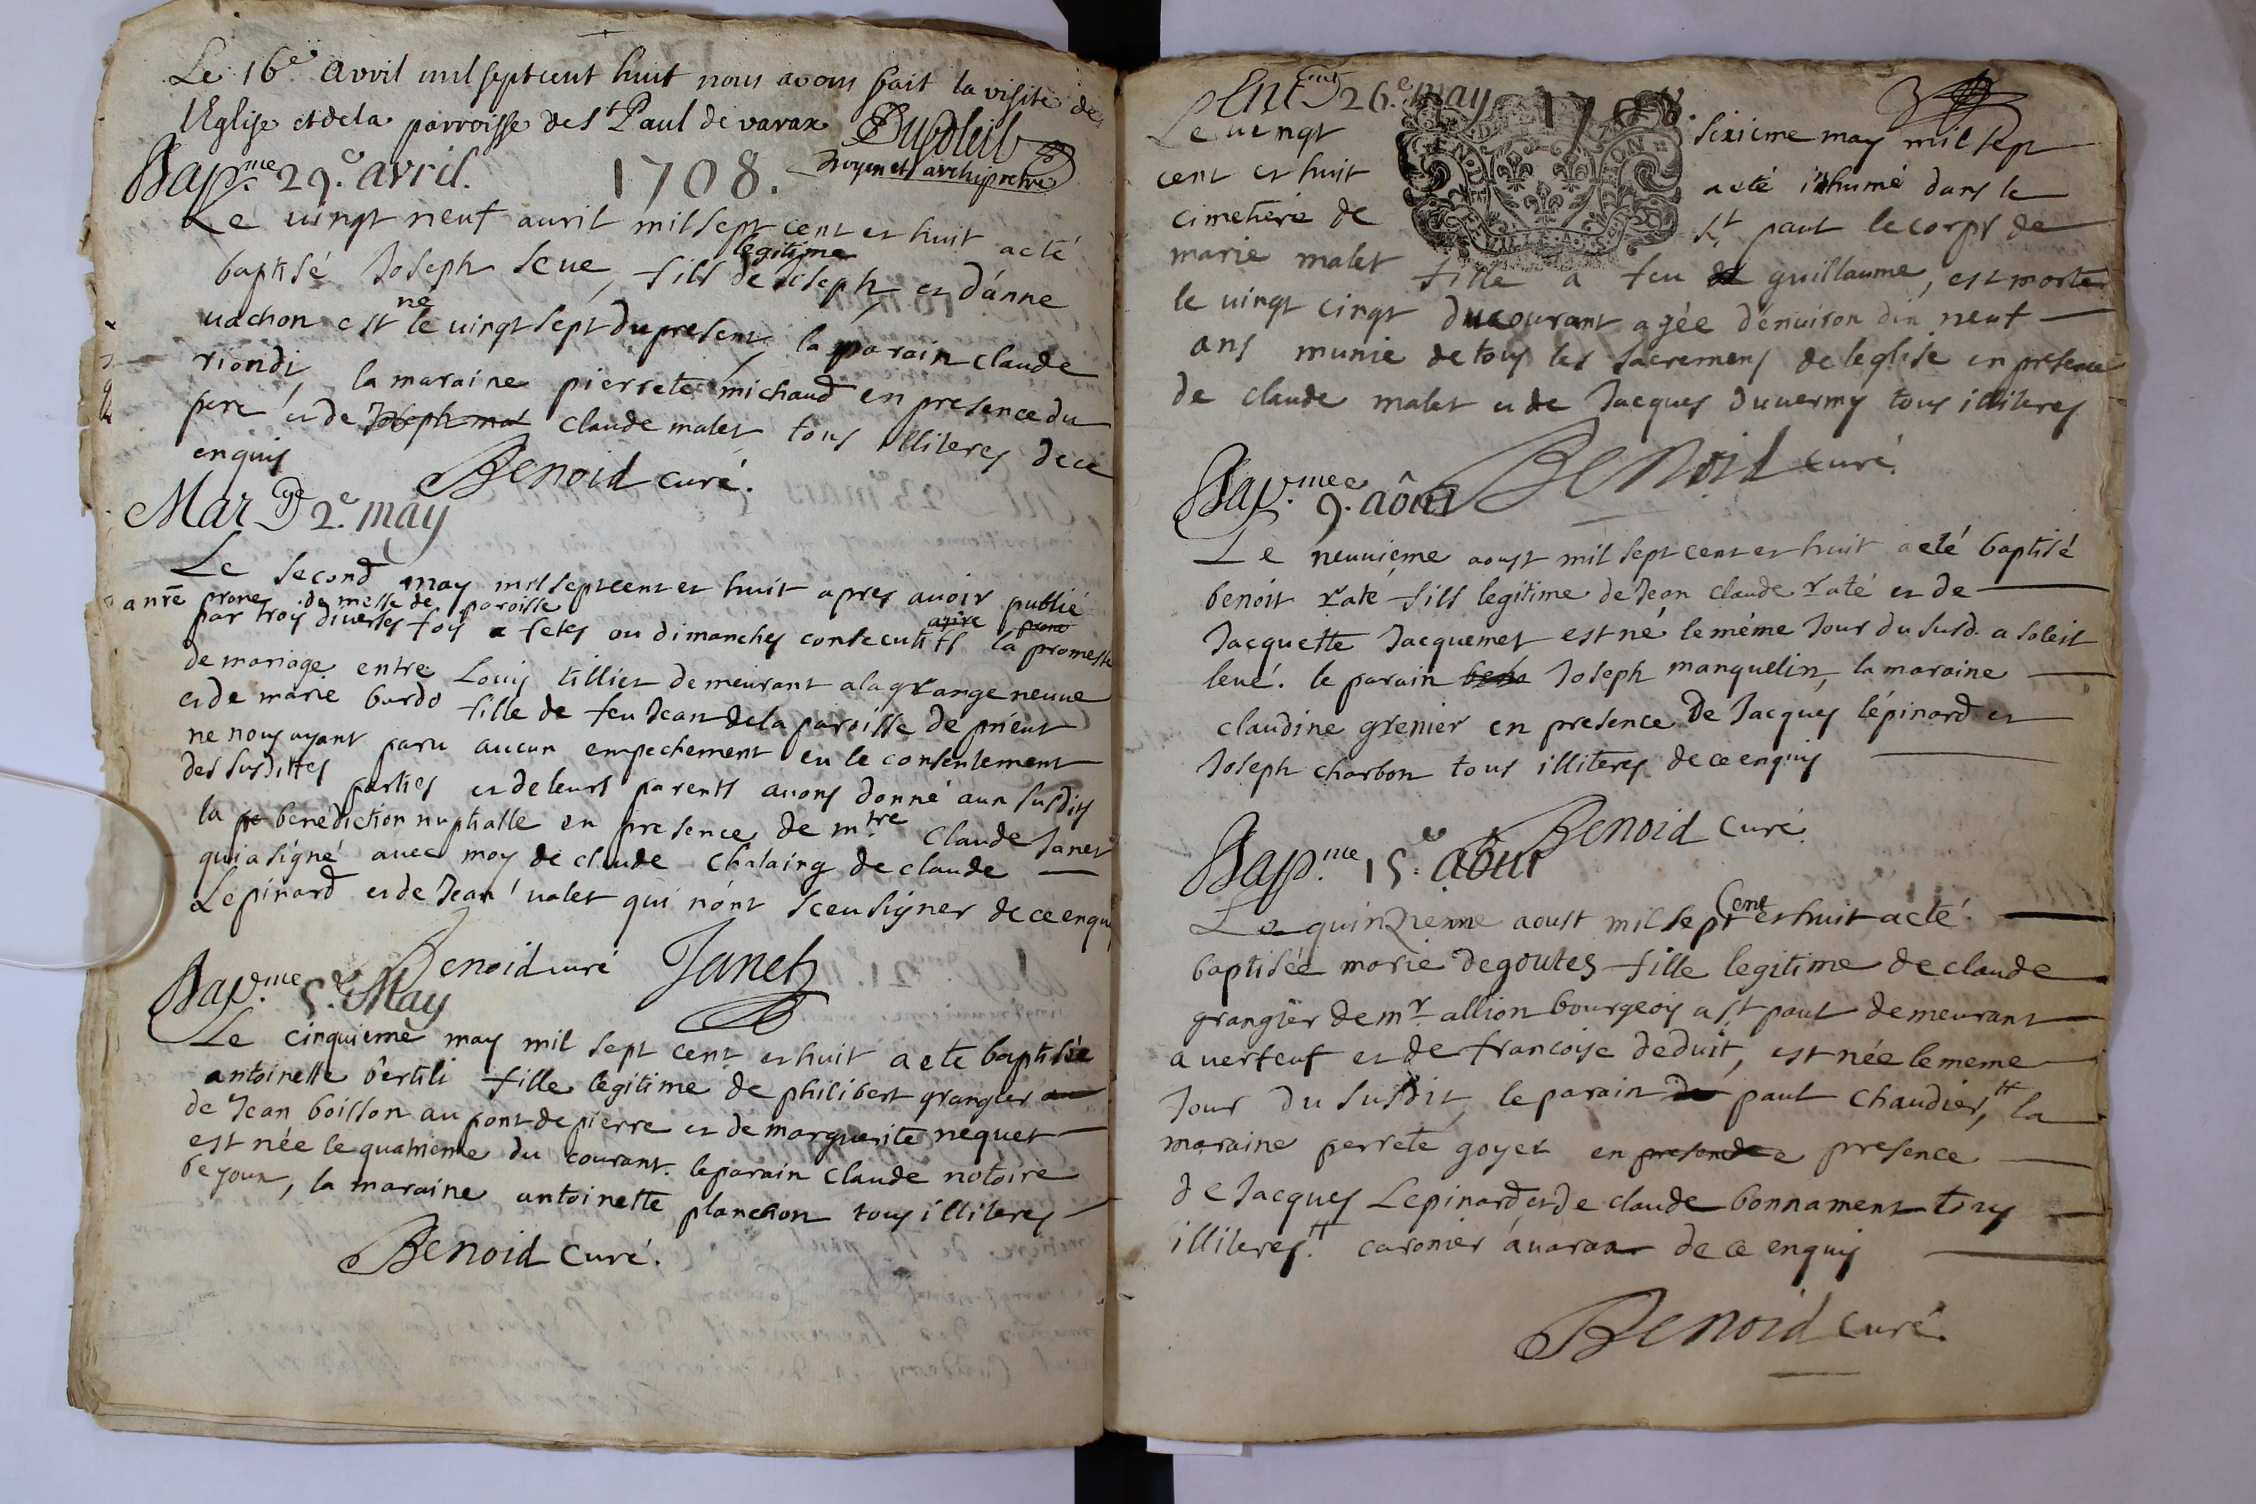 Le 16e Avril mil sept cent huit nous avons fait la visite de
l'Eglise et de la parroisse de St Paul de varax Dusoleil
Doyen et archipretre
Bapme 29.e avril. 1708.
Le vingt neuf auril mil sept cent et huit a eté
legitime
baptisé Joseph seue, fils de Joseph et d'anne
uachon est né le uingt sept du present, le parain claude
riondi, la maraine pierrete michaud en presence du
pere et de Joseph mal claude malet tous illiteres de ce
enquis
Benoid curé.
Marge 2.e may
Le second may mil sept cent et huit apres auoir publié
prones de messe de paroisse
par trois diverses fois a fetes ou dimanches consecutifs la promesse
de mariage entre Louis tillier demeurant a la grange neuue
et de marie burdo fille de feu Jean de la paroisse de prieur
ne nous ayant paru aucun empechement eu le consentement
des susdittes parties et de leurs parents auons donné aux susdits
la pr benediction nuptialle en presence de mtre Claude Janet
qui a signé auec moy de claude Chalaing de claude
Lepinard et de Jean ualet qui n'ont sceu signer de ce enquis
Benoid curé Janet
Bapme 5.e May
Le cinquieme may mil sept cent et huit a eté baptisée
antoinette bertili fille legitime de philibert granger
de Jean boisson au pont de pierre et de marguerite nequet
est née le quatrieme du courant. le parain claude notoire
beyoux, la maraine antoinette planchon tous illiteres
Benoid curé.
Entmt 26.e may 1708.
Le uingt sixieme may mil sept
cent et huit a eté inhumé dans le
cimetiere de St paul le corps de
marie malet fille a feu de guillaume, est morte
le uingt cinqt du courant agée d'enuiron dix neuf
ans munie de tous les sacremens de leglise en presence
de claude malet et de Jacques duuerny tous illiteres
Benoid curé.
Bapme 9.e aôut
Le neuuieme aoust mil sept cent et huit a eté baptisé
benoit raté fils legitime de Jean claude raté et de
Jacquette Jacquemet est né le méme Jour du susd. a soleil
leué. le parain beno Joseph manquelin, la maraine
claudine grenier en presence de Jacques lépinard et
Joseph charbon tous illiteres de ce enquis
Benoid curé.
Bapme 15.e aôut
Le quinzieme aoust mil sept cent et huit a eté
baptisée marie degoutes fille legitime de claude
grangier de mr. allion bourgeois a st paul demeurant
a uerfeuf et de francoise deduit, est née le meme
Jour du susdit, le parain de paul chaudier, # la
maraine perrete goyet en presondee presence
de Jacques Lepinard et de claude bonnament tous
illiteres. # caronier a uarax de ce enquis
Benoid curé.